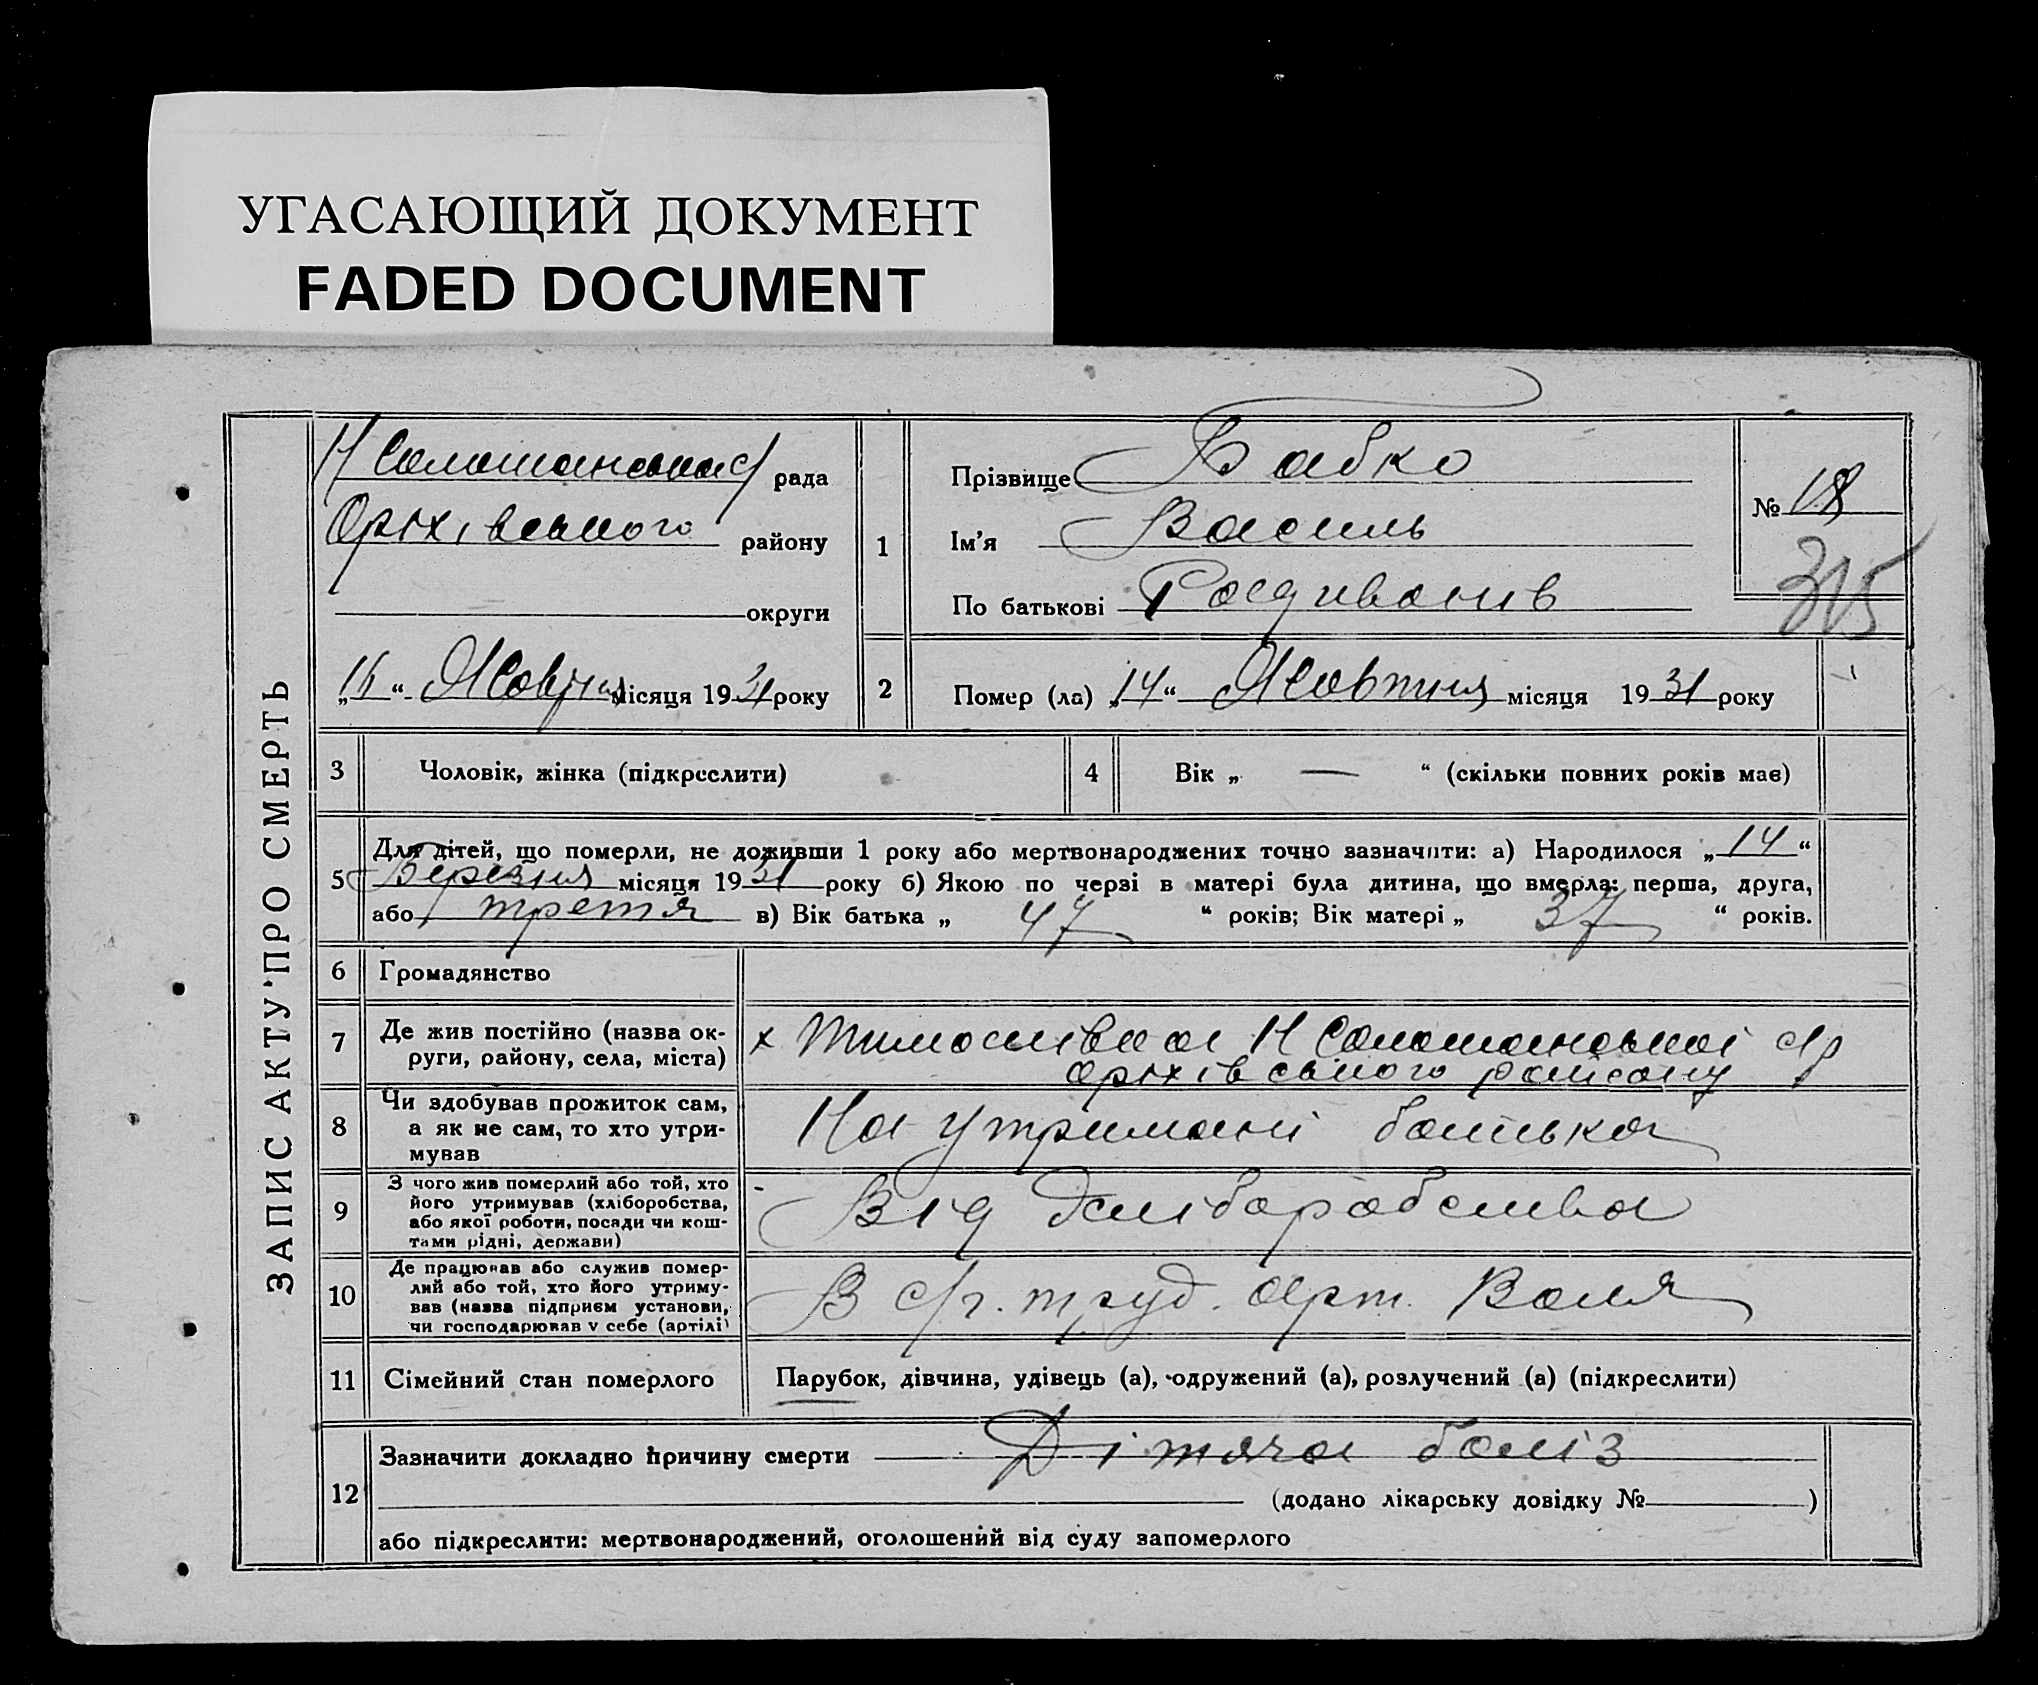 УГАСАЮЩИЙ ДОКУМЕНТ
FADED DOCUMENT
ЗАПИС АКТУ ПРО СМЕРТЬ
Н Солошанська с/ рада
Оріхівського району
округи
„16“ Жовтня місяця 1931 року
1
Прізвище Бабко
Ім'я Василь
По батькові Родивонів
№ 18
315
2 Помер (ла) „14“ Жовтня місяця 1931 року
3 Чоловік, жінка (підкреслити)
4 Вік „ — “ (скільки повних років має)
5 Для дітей, що померли, не доживши 1 року або мертвонароджених точно зазначити: а) Народилося „14“
Березня місяця 1931 року б) Якою по черзі в матері була дитина, що вмерла: перша, друга,
або третя в) Вік батька „ 47 “ років; Вік матері „ 37 “ років.
6 Громадянство
7 Де жив постійно (назва ок-
руги, району, села, міста)
х Тимошівка Н Солошанської с/р
Оріхівського району
8 Чи здобував прожиток сам,
а як не сам, то хто утри-
мував
На утримані батька
9 З чого жив померлий або той, хто
його утримував (хліборобства,
або якої роботи, посади чи кош-
тами рідні, держави)
Від хліборобства
10 Де працював або служив помер-
лий або той, хто його утриму-
вав (назва підприєм установи,
чи господарював у себе (артілі)
В с/г. труд. арт. Воля
11 Сімейний стан померлого
Парубок, дівчина, удівець (а), одружений (а), розлучений (а) (підкреслити)
12 Зазначити докладно причину смерти Дітяча боліз
(додано лікарську довідку № )
або підкреслити: мертвонароджений, оголошений від суду запомерлого